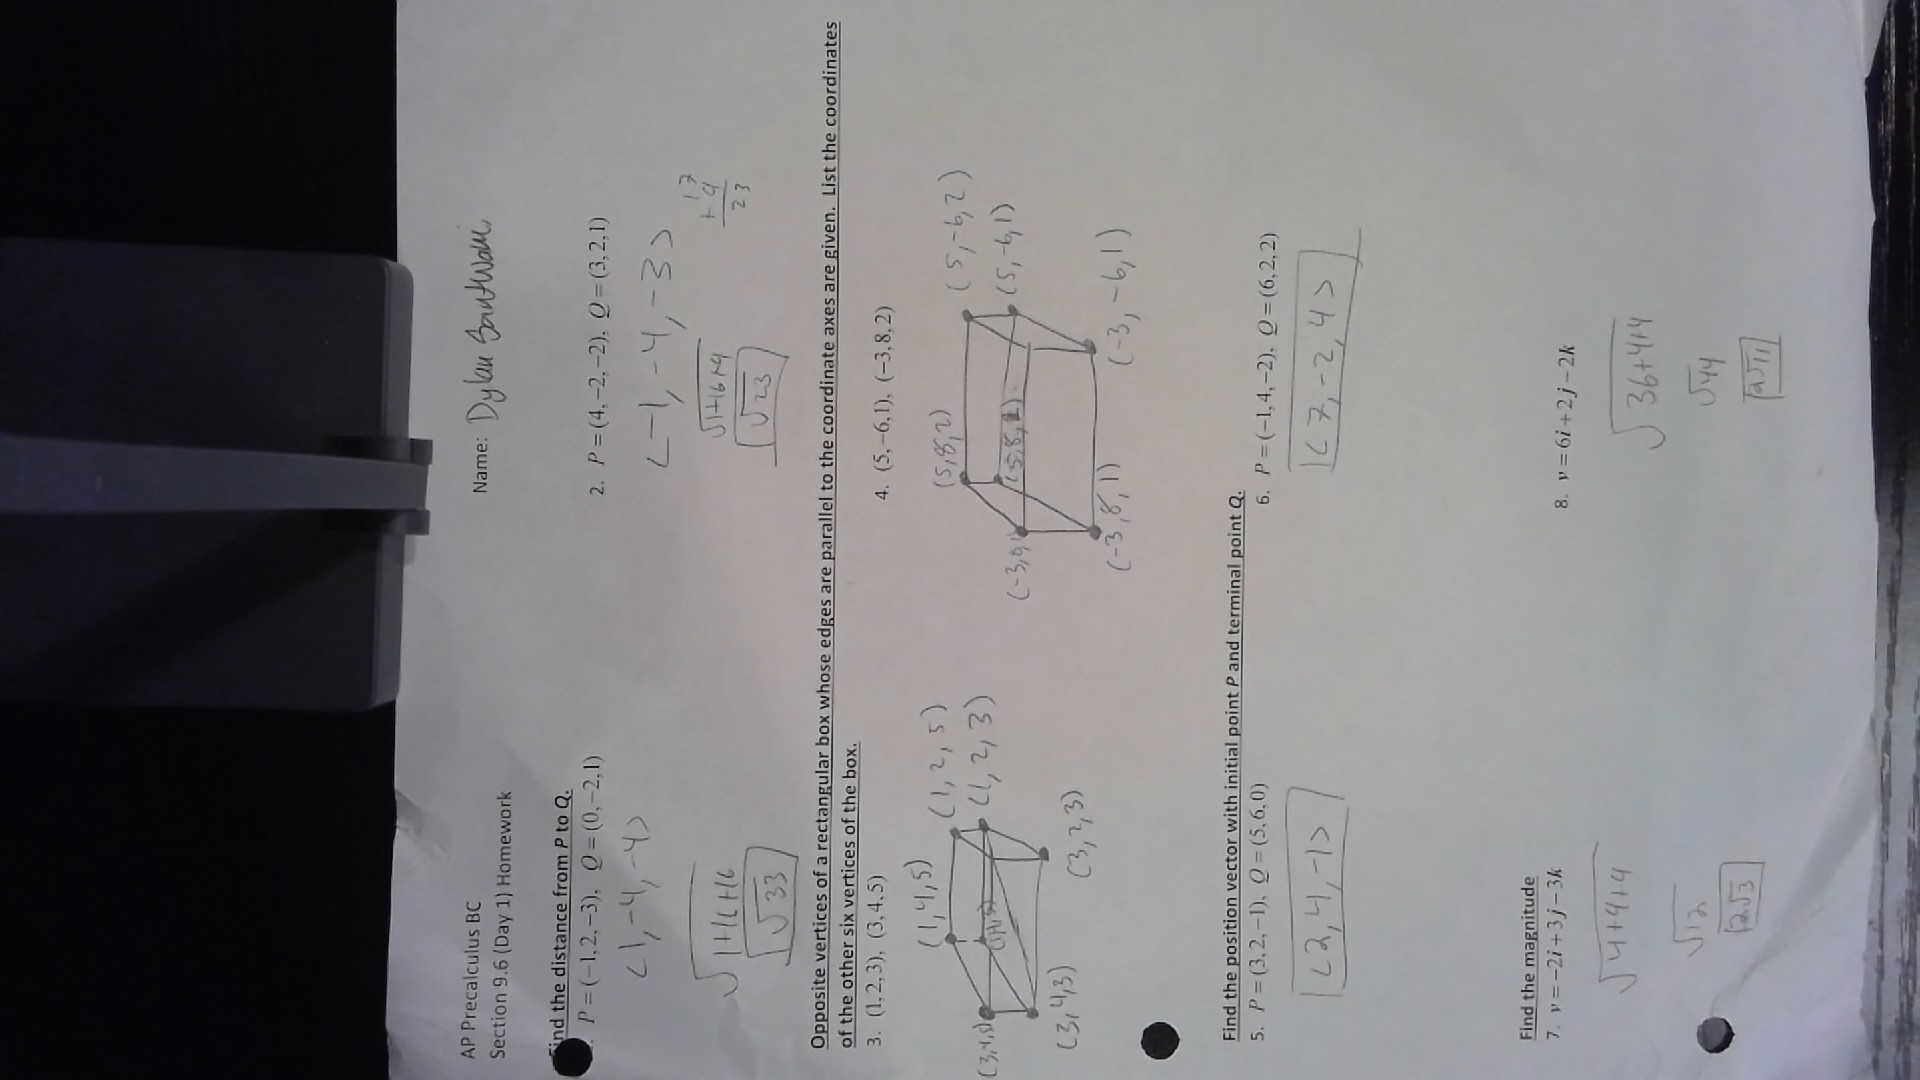 AP Precalculus BC
Section 9.6 (Day 1) Homework
Name: Dylan
Find the distance from P to Q.
P = (−1, 2, −3), Q = (0, −2, 1)
<1, −4, −4>
√1+16+16
√33
2. P = (4, −2, −2), Q = (3, 2, 1)
<−1, −4, −3>
√1+16+9
√23
17
+ 9
23
Opposite vertices of a rectangular box whose edges are parallel to the coordinate axes are given. List the coordinates
of the other six vertices of the box.
3. (1, 2, 3), (3, 4, 5)
(1, 4, 5)
(1, 2, 5)
(1, 2, 3)
(3, 4, 5)
(3, 4, 3)
(3, 2, 3)
4. (5, −6, 1), (−3, 8, 2)
(5, 8, 2)
(5, −6, 2)
(5, −6, 1)
(−3, 8, 1)
(−3, −6, 1)
Find the position vector with initial point P and terminal point Q.
5. P = (3, 2, −1), Q = (5, 6, 0)
<2, 4, −1>
6. P = (−1, 4, −2), Q = (6, 2, 2)
<7, −2, 4>
Find the magnitude
7. v = −2i + 3j − 3k
√4+9+9
√12
2√3
8. v = 6i + 2j − 2k
√36+4+4
√44
2√11